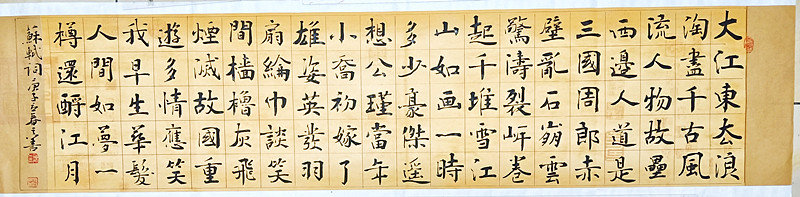 大江東去浪
淘盡千古風
流人物故壘
西邊人道是
三國周郎赤
壁亂石崩雲
驚濤裂岸卷
起千堆雪江
山如画一時
多少豪傑遥
想公瑾當年
小喬初嫁了
雄姿英發羽
扇綸巾談笑
間檣櫓灰飛
煙滅故國重
遊多情應笑
我早生華髮
人間如夢一
樽還酹江月
蘇軾詞庚子